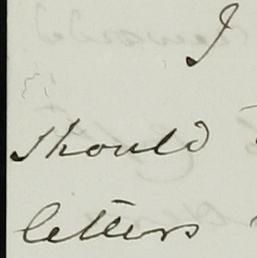 I
should
letters